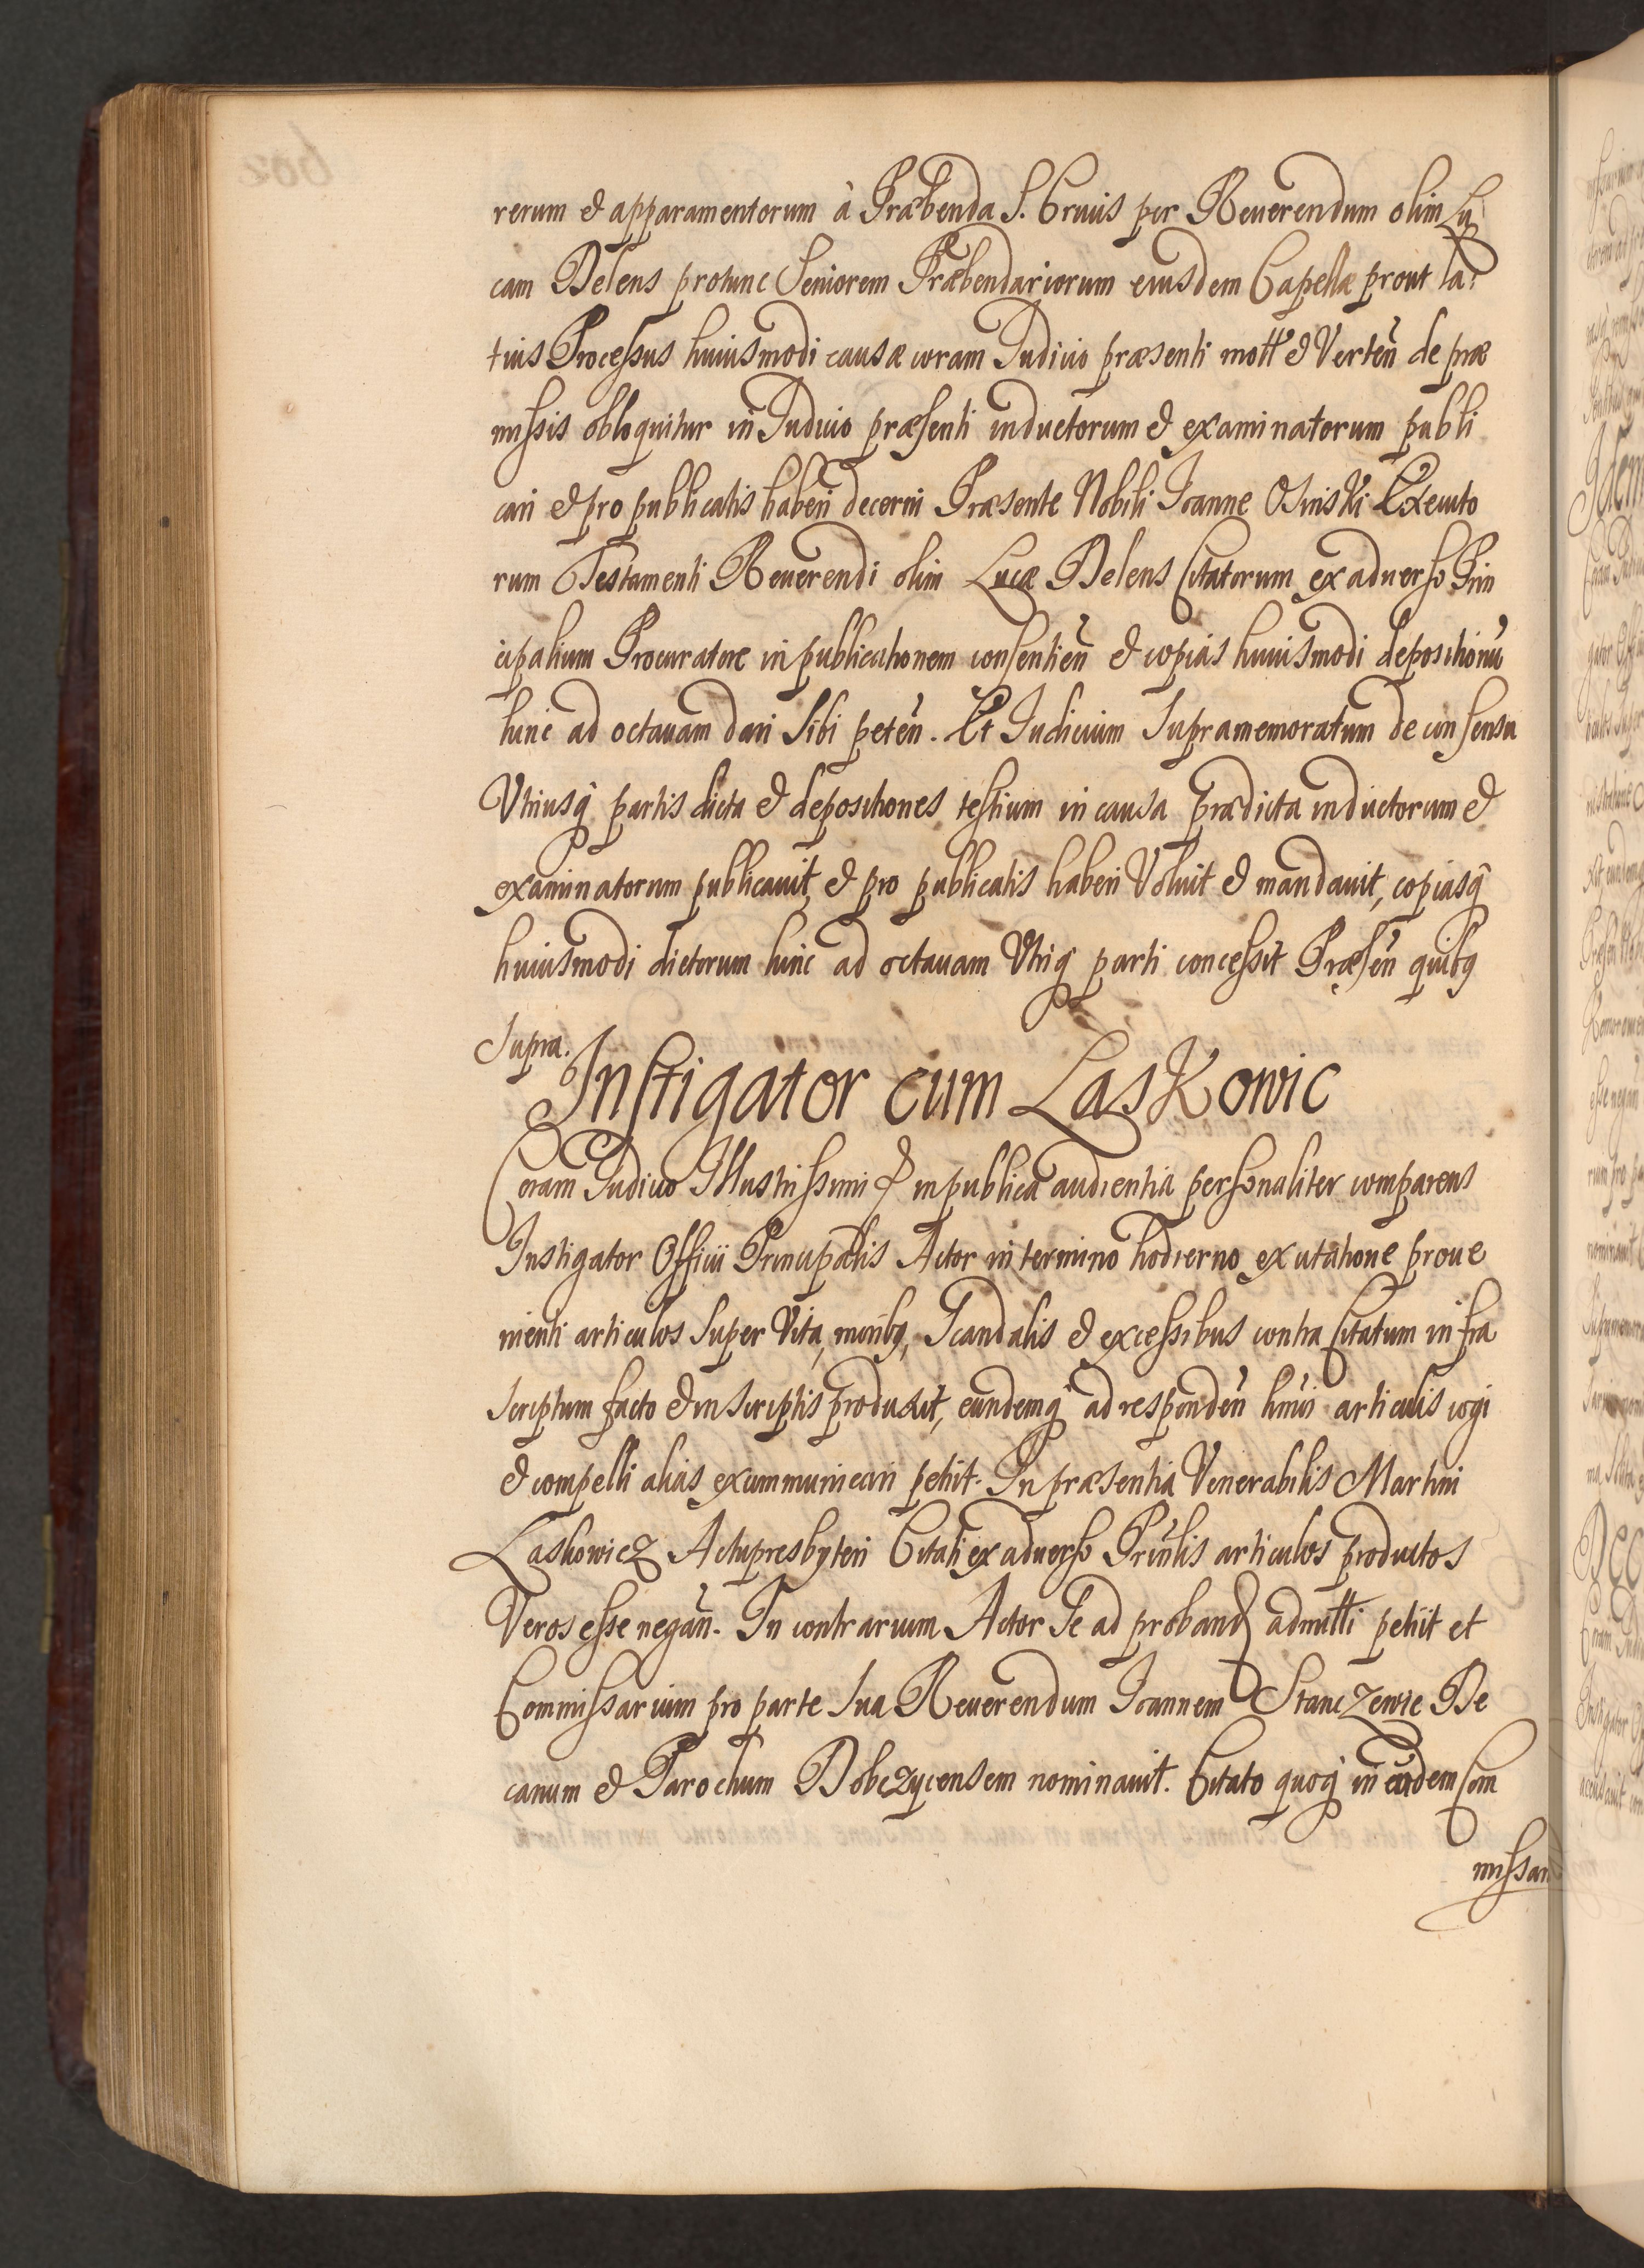 rerum et apparamentorum à Præbenda S. Crucis per Reuerendum olim Lu
cam Delens protunc Seniorem Præbendariorum eiusdem Capellæ prout la:
tius Processus huiusmodi causæ coram Judicio præsenti mott et Verteñ de præ
missis obloquitur in Judicio præsenti inductorum et examinatorum publi
cari et pro publicatis haberi decerni Præsente Nobili Joanne Osinski Executo
rum Testamenti Reuerendi olim Lucæ Delens Citatorum ex aduerso Prin
cipalium Procuratore in publicationem consentieñ et copias huiusmodi depositionũ
hinc ad octauam dari Sibi peteñ. Et Judicium Supramemoratum de consensu
Vtriusq̃ partis dicta et depositiones testium in causa prædicta inductorum et
examinatorum publicauit, et pro publicatis haberi Voluit et mandauit, copiasq̃
huiusmodi dictorum hinc ad octauam Vtriq̃ parti concessit Præseñ quibꝯ
Supra.
Instigator cum Laskowic
Coram Judicio Illustrissimi & in publica audientia personaliter comparens
Instigator Officii Principalis Actor in termino hodierno ex citatione proue
nienti articulos Super Vita, moribꝯ, Scandalis et excessibus contra Citatum infra
Scriptum facto et in Scriptis produxit, eundemq̃ ad respondeñ huiõi articulis cogi
et compelli alias excommunicari petiit. In præsentia Venerabilis Martini
Laskowicz Actupresbyteri Citati ex aduerso Prinlis articulos productos
Veros esse negañ. In contrarium Actor Se ad proband admitti petiit et
Commissarium pro parte Sua Reuerendum Joannem Stanczewic De
canum et Parochum Dobczycensem nominauit. Citato quoq̃ in eūdem Com
missari